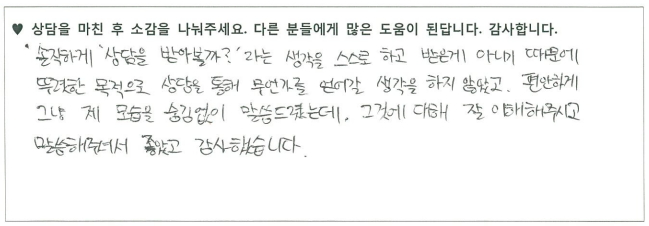 ♥ 상담을 마친 후 소감을 나눠주세요. 다른 분들에게 많은 도움이 된답니다. 감사합니다.
'솔직하게 '상담을 받아볼까?' 라는 생각을 스스로 하고 받은게 아니기 때문에
뚜렷한 목적으로 상담을 통해 무언가를 얻어갈 생각을 하지 않았고. 편안하게
그냥 제 모습을 숨김없이 말씀드렸는데, 그것에 대해 잘 이해해주시고
말씀해주셔서 좋았고 감사했습니다.